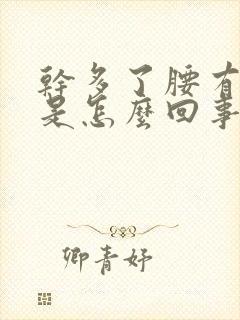 幹多了腰有
是怎麼回事
卿青妤